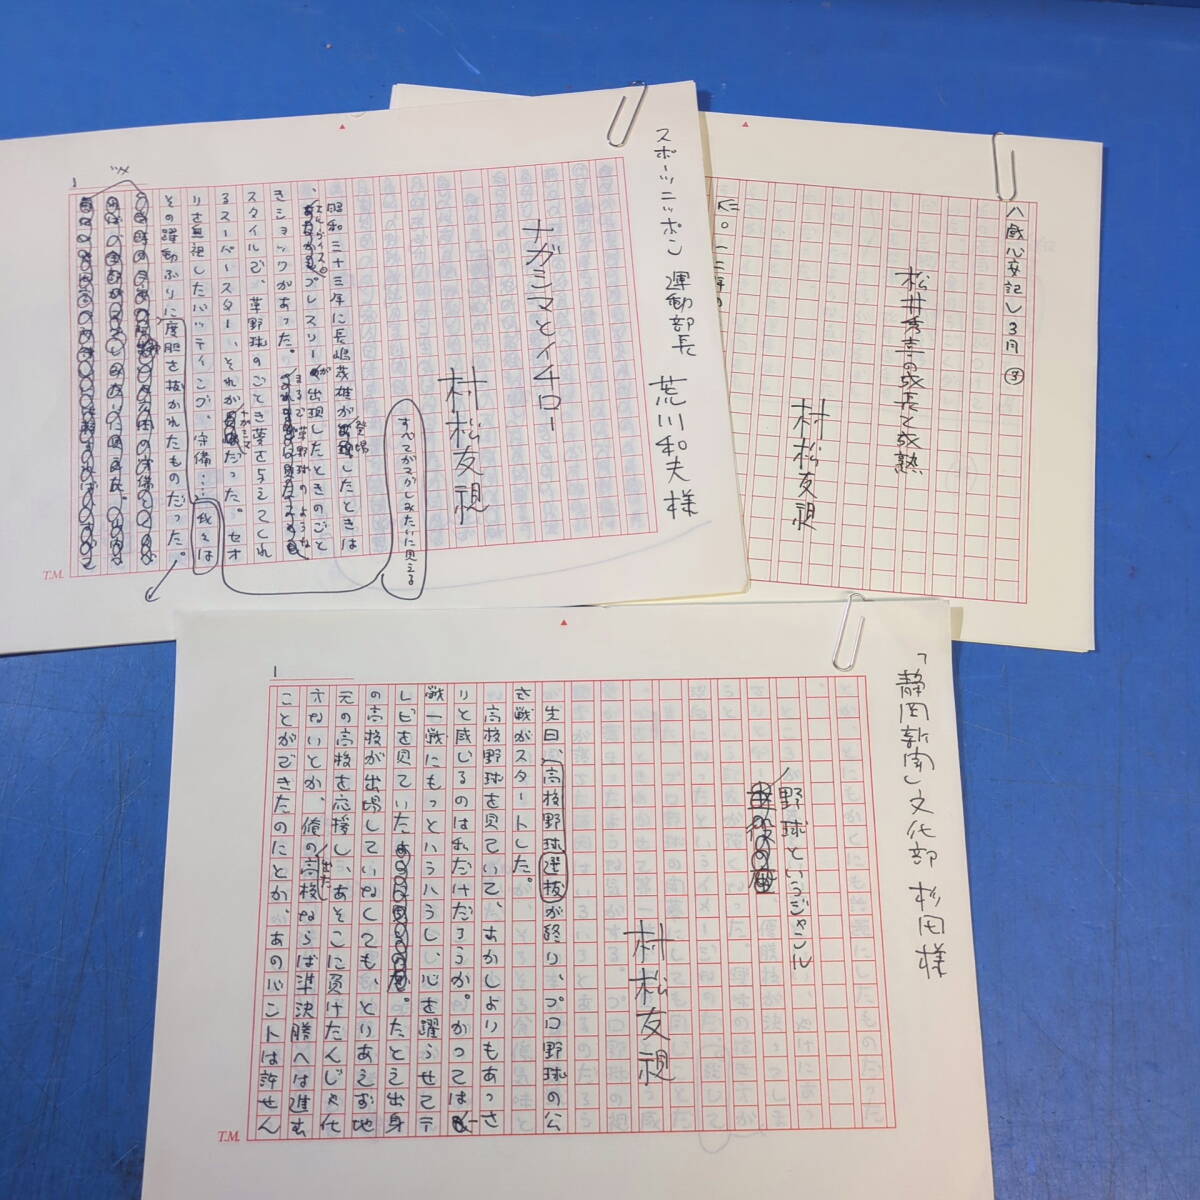 スポーツニッポン 運動部長 荒川和夫様
ナガシマとイチロー
村松友視
昭和三十三年に長嶋茂雄が登場したときは
、エルヴィス・プレスリーが出現したときのごと
きショックがあった。まるで草野球のような
スタイルで、草野球のごとき夢を与えてくれ
るスーパースター、それがナガシマだった。セオ
リーを無視したバッティング、守備……我々は
その躍動ぶりに度胆を抜かれたものだった。
すべてがスかしみたいに見える
ツメ
1
T.M.
3月 ③
松井秀喜の成長と成熟
村松友視
「静岡新聞」文化部 杉田様
野球というジャンル
村松友視
1
先日、高校野球選抜が終り、プロ野球の公
式戦がスタートした。
高校野球を見ていて、むかしよりもあっさ
りと感じるのは私だけだろうか。かつては
戦一戦にもっとハラハラし、心を躍らせてテ
レビを見ていた。たとえ出身
の高校が出場していなくても、とりあえず地
元の高校を応援し、あそこに負けたんじゃ仕
方ないとか、俺の出た高校ならば準決勝へは進む
ことができたのにとか、あのバントは許せん
T.M.